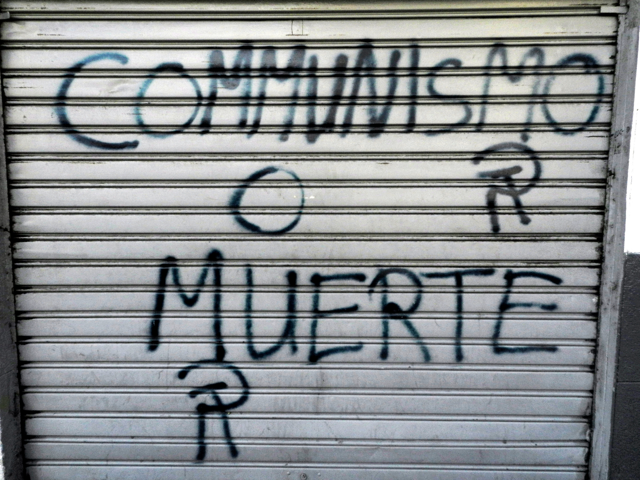 COMMUNISMO
O
MUERTE